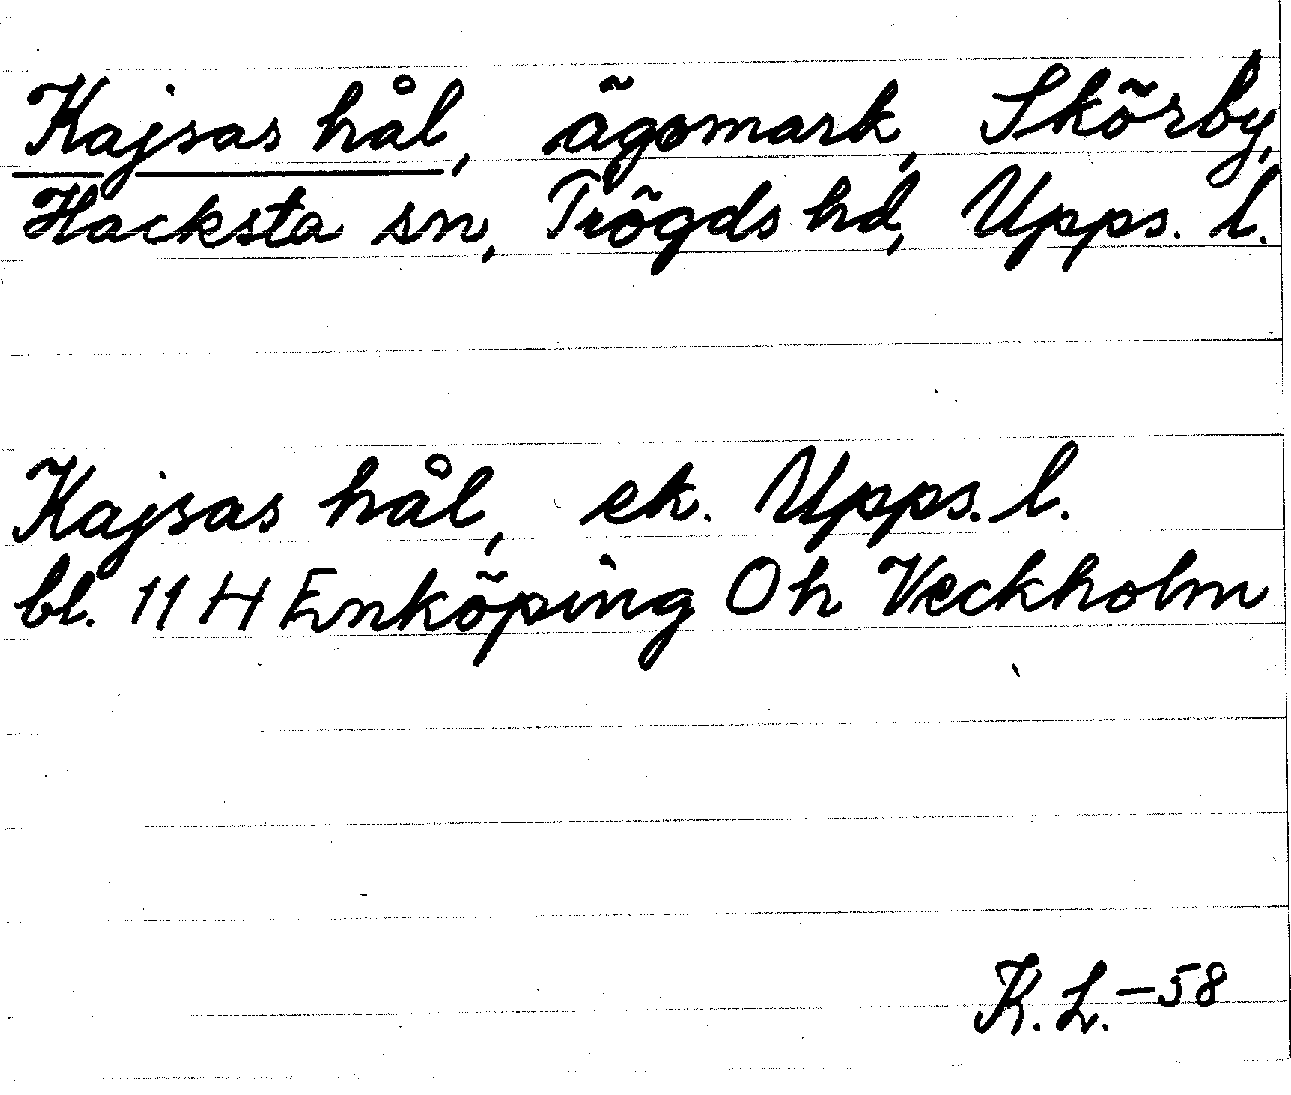 Kajsas hål, ägomark, Skörby,
Hacksta sn, Trögds hd, Upps. l.
Kajsas hål, ek. Upps. l.
bl. 11 H Enköping Oh Veckholm
K. L. -58